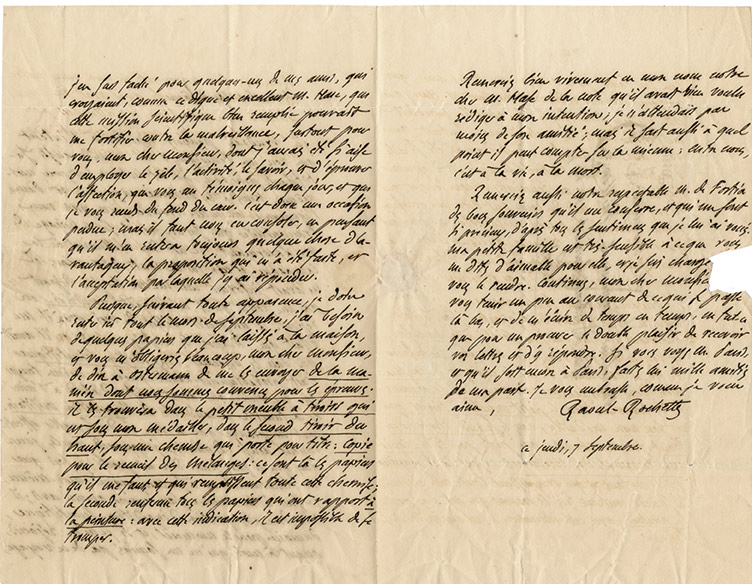 j'en suis fâché pour quelques-uns de nos amis, qui
croyaient, comme ce digne et excellent M. Hase, que
cette mission scientifique bien remplie pourrait
me fortifier contre la malveillance, surtout pour
vous, mon cher monsieur, dont j'aurais été si aise
d'employer le zèle, l'activité, le savoir, et d'éprouver
l'affection, que vous me témoignez chaque jour, et que
je vous rends du fond du cœur. c'est donc une occasion
perdue; mais il faut nous en consoler, en pensant
qu'il m'en restera toujours quelque chose d'a-
vantageux, la proposition qui m'a été faite, et
l'acceptation par laquelle j'y ai répondu.
Puisque, suivant toute apparence, je dois
rester ici tout le mois de septembre, j'ai besoin
de quelques papiers que j'ai laissés à la maison,
et vous m'obligerez beaucoup, mon cher monsieur,
de dire à Ostermann de me les envoyer de la ma-
nière dont nous sommes convenus pour les épreuves.
il les trouvera dans le petit meuble à tiroirs qui
est sous mon médailler, dans le second tiroir du
haut, sous une chemise qui porte pour titre: copie
pour le recueil des mélanges: ce sont là les papiers
qu'il me faut et qui remplissent toute cette chemise:
la seconde renferme tous les papiers qui ont rapport à
la peinture: avec cette indication, il est impossible de se
tromper.
Remerciez bien vivement en mon nom notre
cher M. Hase de la note qu'il avait bien voulu
rédiger à mon intention; je n'attendais pas
moins de son amitié; mais il sait aussi à quel
point il peut compter sur la mienne: entre nous,
c'est à la vie, à la mort.
Remerciez aussi notre respectable M. de Fortia
des bons souvenirs qu'il me conserve, et qui me sont
si précieux, d'après tous les sentimens que je lui ai voués.
ma petite famille est très sensible à ce que vous
me dites d'aimable pour elle, et je suis chargé
vous le rendre. Continuez, mon cher monsieur
vous tenir un peu au courant de ce qui se passe
là bas, et de m'écrire de temps en temps, ne fût-ce
que pour me procurer le double plaisir de recevoir
vos lettres et d'y répondre. Si vous voyez M.
et qu'il soit à faites lui mille amitiés
de ma part. Je vous embrasse, comme je vous
aime,
Raoul-Rochette
ce jeudi, 7 Septembre.